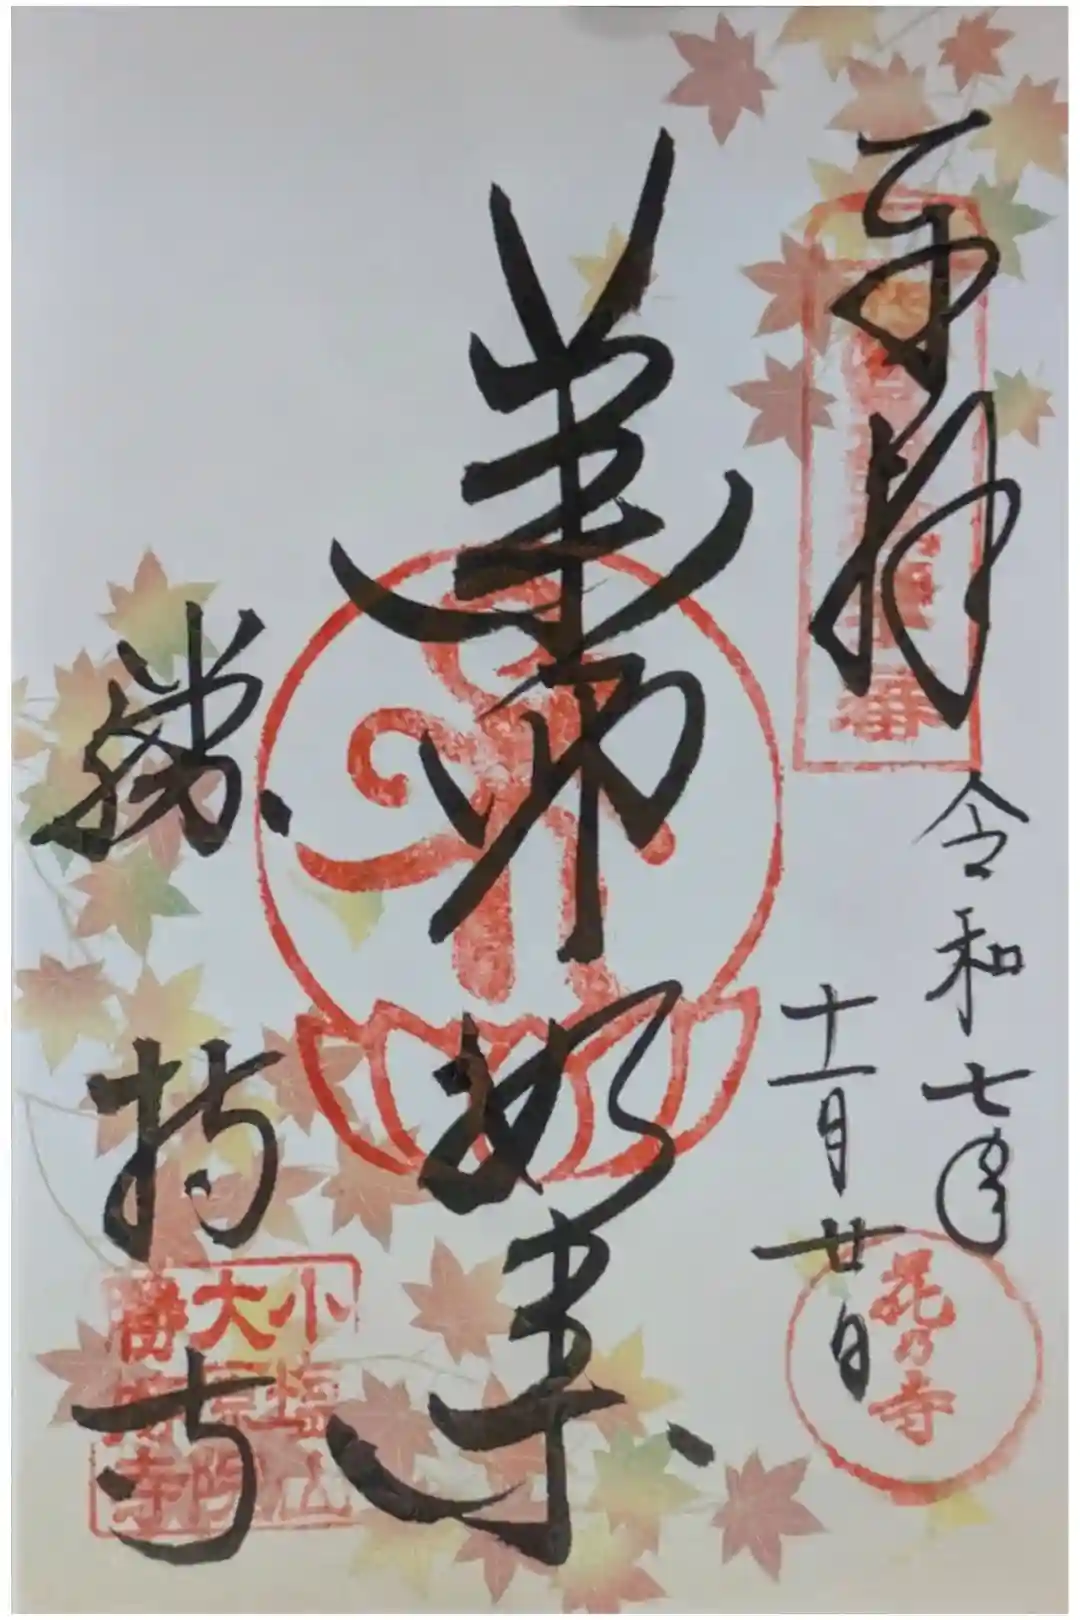 奉拝
令和七年
十一月廿日
花乃寺
薬師如来
勝持寺
小塩山
大原院
勝持寺